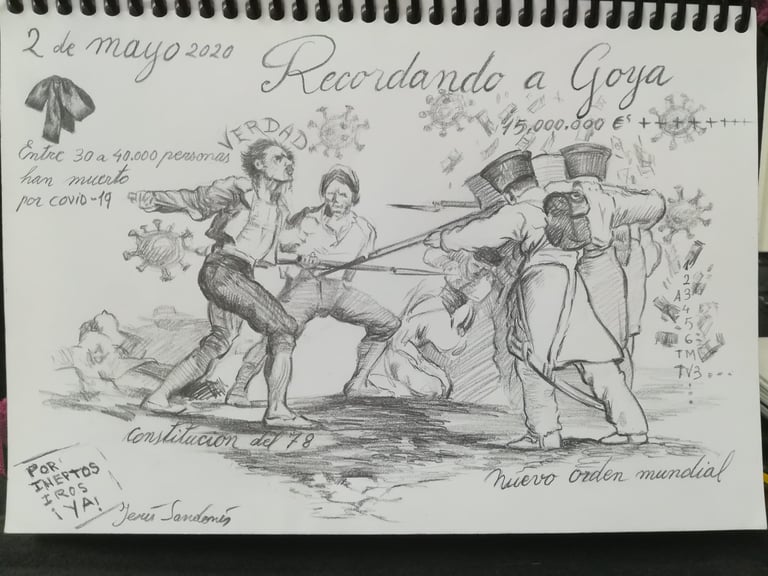 2 de mayo 2020
Recordando a Goya
15,000.000 €s +++++++++
VERDAD
Entre 30 a 40.000 personas
han muerto
por covid-19
1
2
A 3
4
5
6
TM
TV3...
Constitucion del 78
nuevo orden mundial
POR
INEPTOS
IROS
¡YA!
Jesús Sandonís